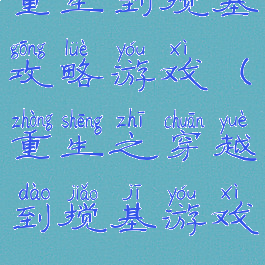 重生到搅基
gōng lüè yóu xì
攻略游戏（
zhòng shēng zhī chuān yuè
重生之穿越
dào jiǎo jī yóu xì
到搅基游戏